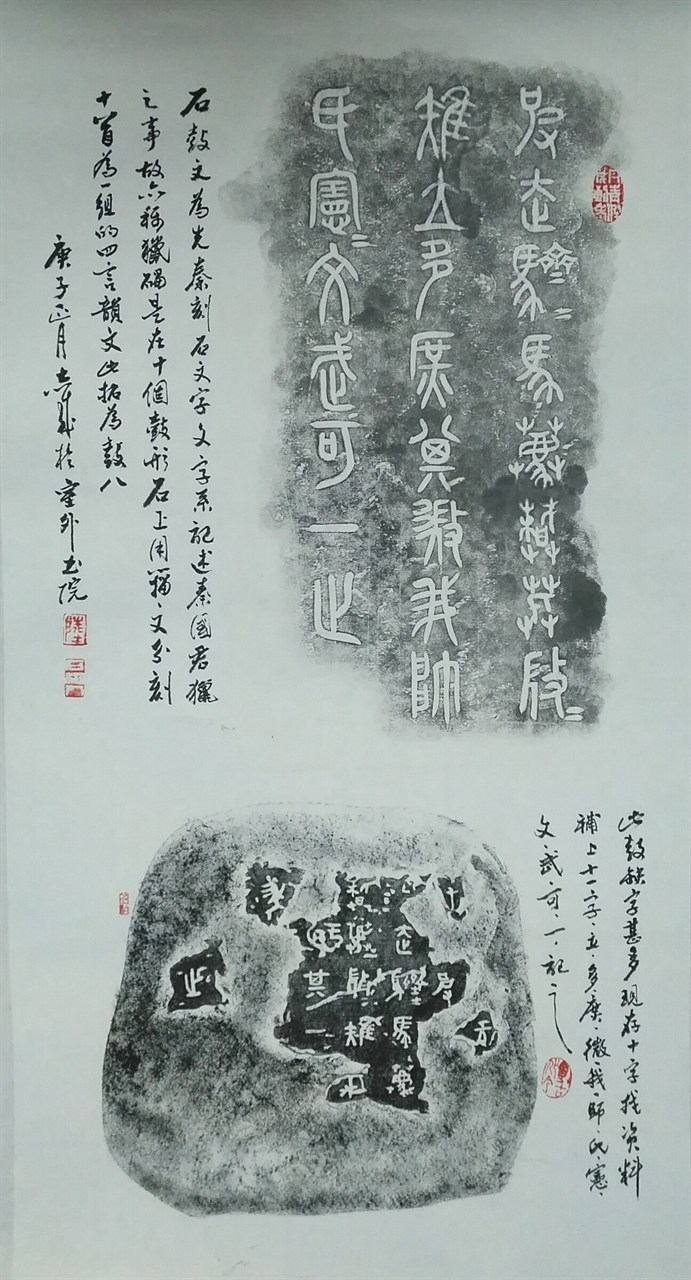 皮走馬薦
雉立多庶其我師
氏憲文武可一之
石鼓文為先秦刻石文字文字系記述秦國君獵
之事故亦稱獵碣是在十個鼓形石上用籀文分刻
十首為一組的四言韻文此拓為鼓八
庚子正月於室外书院
此鼓缺字甚多現存十字找资料
補上十一字、立、多、庶、微、我、師、氏、憲、
文、武、可、一、記之
走馬薦
雉
其一
之